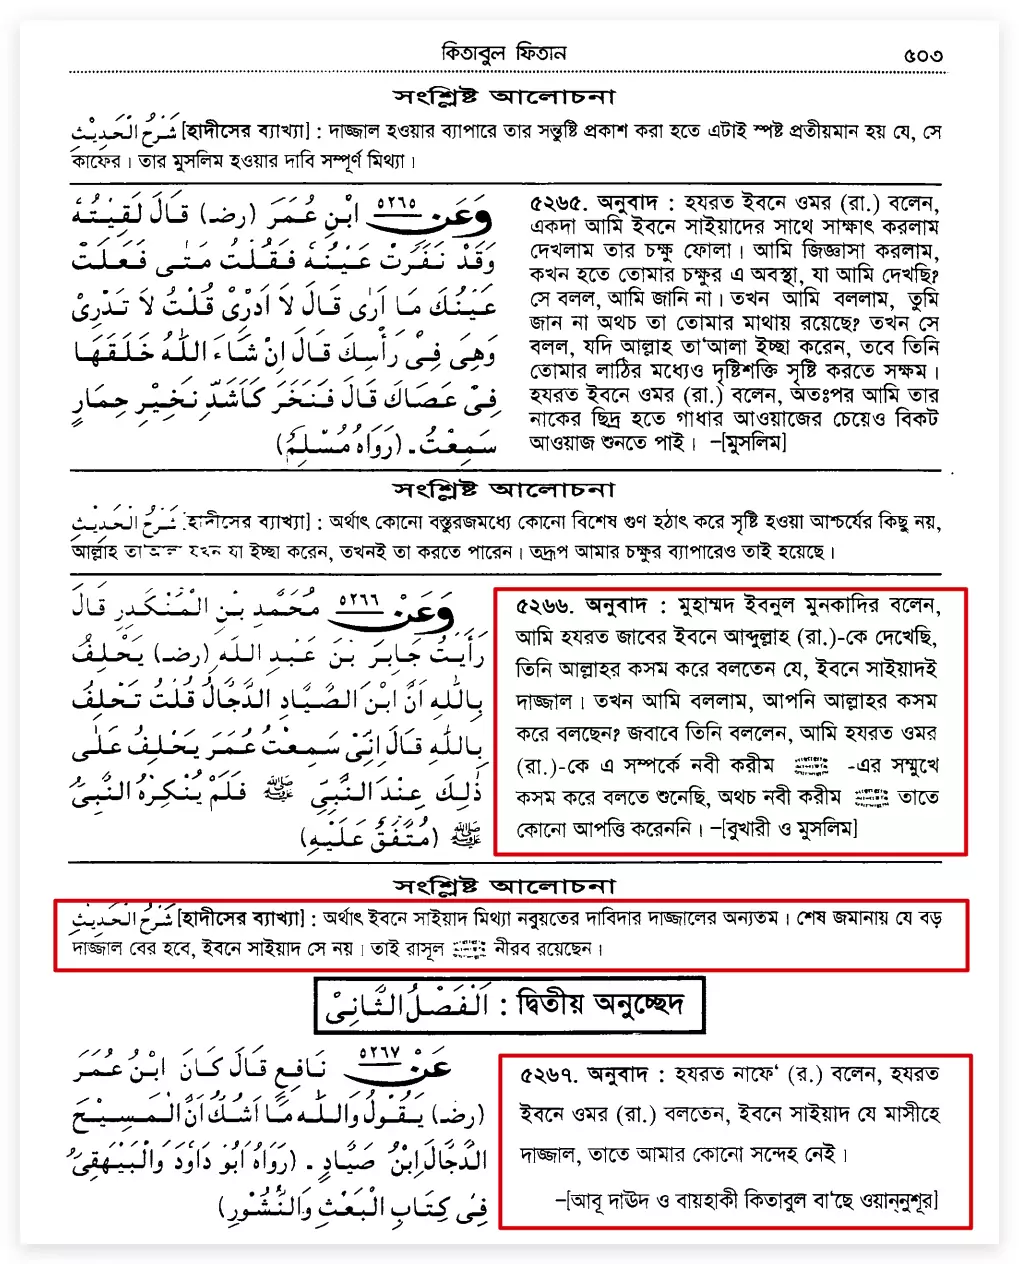 কিতাবুল ফিতান ৫০৩
সংশ্লিষ্ট আলোচনা
شَرْحُ الْحَدِيْثِ [হাদীসের ব্যাখ্যা] : দাজ্জাল হওয়ার ব্যাপারে তার সন্তুষ্টি প্রকাশ করা হতে এটাই স্পষ্ট প্রতীয়মান হয় যে, সে
কাফের। তার মুসলিম হওয়ার দাবি সম্পূর্ণ মিথ্যা।
وَعَنْ ٥٢٦٥ ابْنِ عُمَرَ (رضـ) قَالَ لَقِيْتُهُ
وَقَدْ نَفَرَتْ عَيْنُهُ فَقُلْتُ مَتٰى فَعَلَتْ
عَيْنُكَ مَا اَرٰى قَالَ لَا اَدْرِىْ قُلْتُ لَا تَدْرِىْ
وَهِىَ فِىْ رَأْسِكَ قَالَ اِنْ شَاءَ اللّٰهُ خَلَقَهَا
فِىْ عَصَاكَ قَالَ فَنَخَرَ كَاَشَدِّ نَخِيْرِ حِمَارٍ
سَمِعْتُ. (رَوَاهُ مُسْلِمٌ)
৫২৬৫. অনুবাদ : হযরত ইবনে ওমর (রা.) বলেন,
একদা আমি ইবনে সাইয়াদের সাথে সাক্ষাৎ করলাম
দেখলাম তার চক্ষু ফোলা। আমি জিজ্ঞাসা করলাম,
কখন হতে তোমার চক্ষুর এ অবস্থা, যা আমি দেখছি?
সে বলল, আমি জানি না। তখন আমি বললাম, তুমি
জান না অথচ তা তোমার মাথায় রয়েছে? তখন সে
বলল, যদি আল্লাহ তা'আলা ইচ্ছা করেন, তবে তিনি
তোমার লাঠির মধ্যেও দৃষ্টিশক্তি সৃষ্টি করতে সক্ষম।
হযরত ইবনে ওমর (রা.) বলেন, অতঃপর আমি তার
নাকের ছিদ্র হতে গাধার আওয়াজের চেয়েও বিকট
আওয়াজ শুনতে পাই। –[মুসলিম]
সংশ্লিষ্ট আলোচনা
شَرْحُ الْحَدِيْثِ [হাদীসের ব্যাখ্যা] : অর্থাৎ কোনো বস্তুরজমধ্যে কোনো বিশেষ গুণ হঠাৎ করে সৃষ্টি হওয়া আশ্চর্যের কিছু নয়,
আল্লাহ তা'আলা যখন যা ইচ্ছা করেন, তখনই তা করতে পারেন। তদ্রূপ আমার চক্ষুর ব্যাপারেও তাই হয়েছে।
وَعَنْ ٥٢٦٦ مُحَمَّدِ بْنِ الْمُنْكَدِرِ قَالَ
رَأَيْتُ جَابِرَ بْنَ عَبْدِ اللّٰهِ (رضـ) يَحْلِفُ
بِاللّٰهِ اَنَّ ابْنَ الصَّيَّادِ الدَّجَّالُ قُلْتُ تَحْلِفُ
بِاللّٰهِ قَالَ اِنِّىْ سَمِعْتُ عُمَرَ يَحْلِفُ عَلٰى
ذٰلِكَ عِنْدَ النَّبِىِّ ﷺ فَلَمْ يُنْكِرْهُ النَّبِىُّ
ﷺ (مُتَّفَقٌ عَلَيْهِ)
৫২৬৬. অনুবাদ : মুহাম্মদ ইবনুল মুনকাদির বলেন,
আমি হযরত জাবের ইবনে আব্দুল্লাহ (রা.)-কে দেখেছি,
তিনি আল্লাহর কসম করে বলতেন যে, ইবনে সাইয়াদই
দাজ্জাল। তখন আমি বললাম, আপনি আল্লাহর কসম
করে বলছেন? জবাবে তিনি বললেন, আমি হযরত ওমর
(রা.)-কে এ সম্পর্কে নবী করীম ﷺ -এর সম্মুখে
কসম করে বলতে শুনেছি, অথচ নবী করীম ﷺ তাতে
কোনো আপত্তি করেননি। –[বুখারী ও মুসলিম]
সংশ্লিষ্ট আলোচনা
شَرْحُ الْحَدِيْثِ [হাদীসের ব্যাখ্যা] : অর্থাৎ ইবনে সাইয়াদ মিথ্যা নবুয়তের দাবিদার দাজ্জালের অন্যতম। শেষ জমানায় যে বড়
দাজ্জাল বের হবে, ইবনে সাইয়াদ সে নয়। তাই রাসূল ﷺ নীরব রয়েছেন।
اَلْفَصْلُ الثَّانِىْ : দ্বিতীয় অনুচ্ছেদ
عَنْ ٥٢٦٧ نَافِعٍ قَالَ كَانَ ابْنُ عُمَرَ
(رضـ) يَقُوْلُ وَاللّٰهِ مَا اَشُكُّ اَنَّ الْمَسِيْحَ
الدَّجَّالَ ابْنُ صَيَّادٍ. (رَوَاهُ اَبُوْ دَاوُدَ وَالْبَيْهَقِىُّ
فِىْ كِتَابِ الْبَعْثِ وَالنُّشُوْرِ)
৫২৬৭. অনুবাদ : হযরত নাফে' (র.) বলেন, হযরত
ইবনে ওমর (রা.) বলতেন, ইবনে সাইয়াদ যে মাসীহে
দাজ্জাল, তাতে আমার কোনো সন্দেহ নেই।
–[আবূ দাঊদ ও বায়হাকী কিতাবুল বা'ছে ওয়াননুশূর]